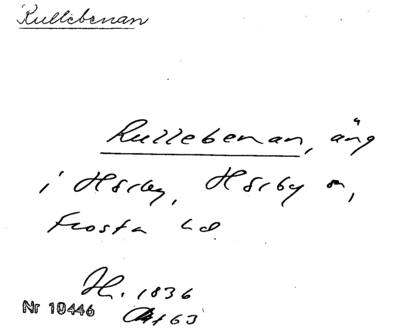 Kullebenan
Kullebenan, äng
i Hörby, Hörby sn,
Frosta hd
H. 1836
Nr 10446
Akt 63